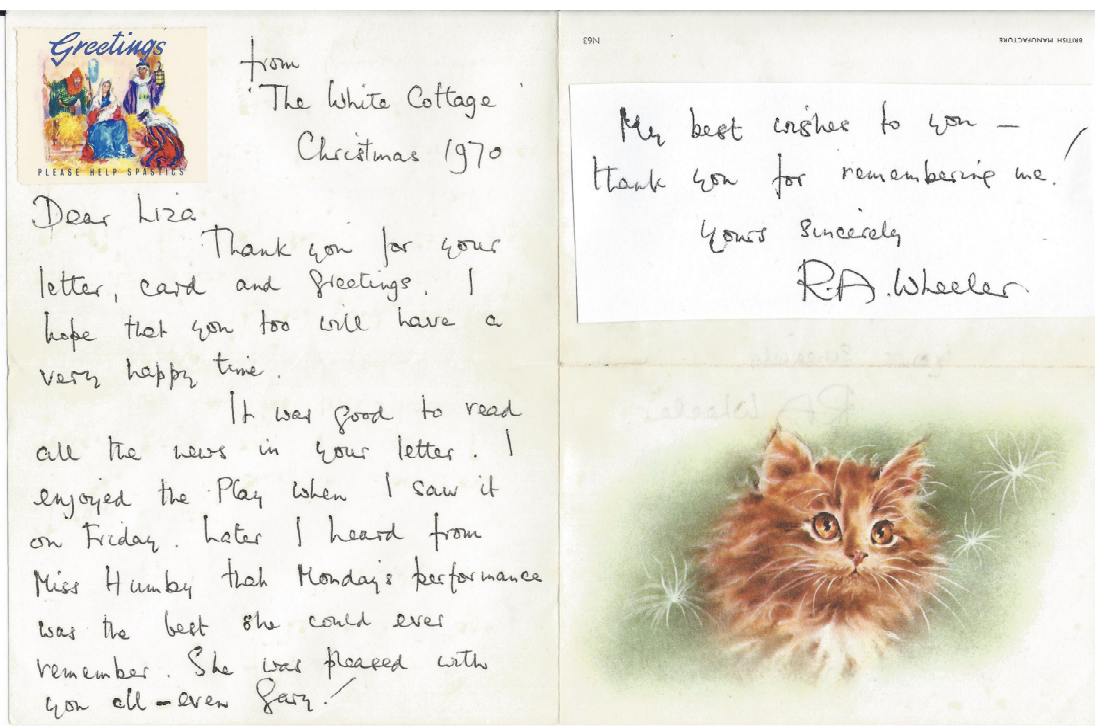 Greetings
PLEASE HELP SPASTICS
from
'The White Cottage'
Christmas 1970
Dear Liza
Thank you for your
letter, card and greetings. I
hope that you too will have a
very happy time.
It was good to read
all the news in your letter. I
enjoyed the Play when I saw it
on Friday. Later I heard from
Miss Humby that Monday's performance
was the best she could ever
remember. She was pleased with
you all - even Gary!
N63
BRITISH MANUFACTURE
My best wishes to you -
thank you for remembering me!
Yours Sincerely
R.A. Wheeler
Yours Sincerely
R A Wheeler